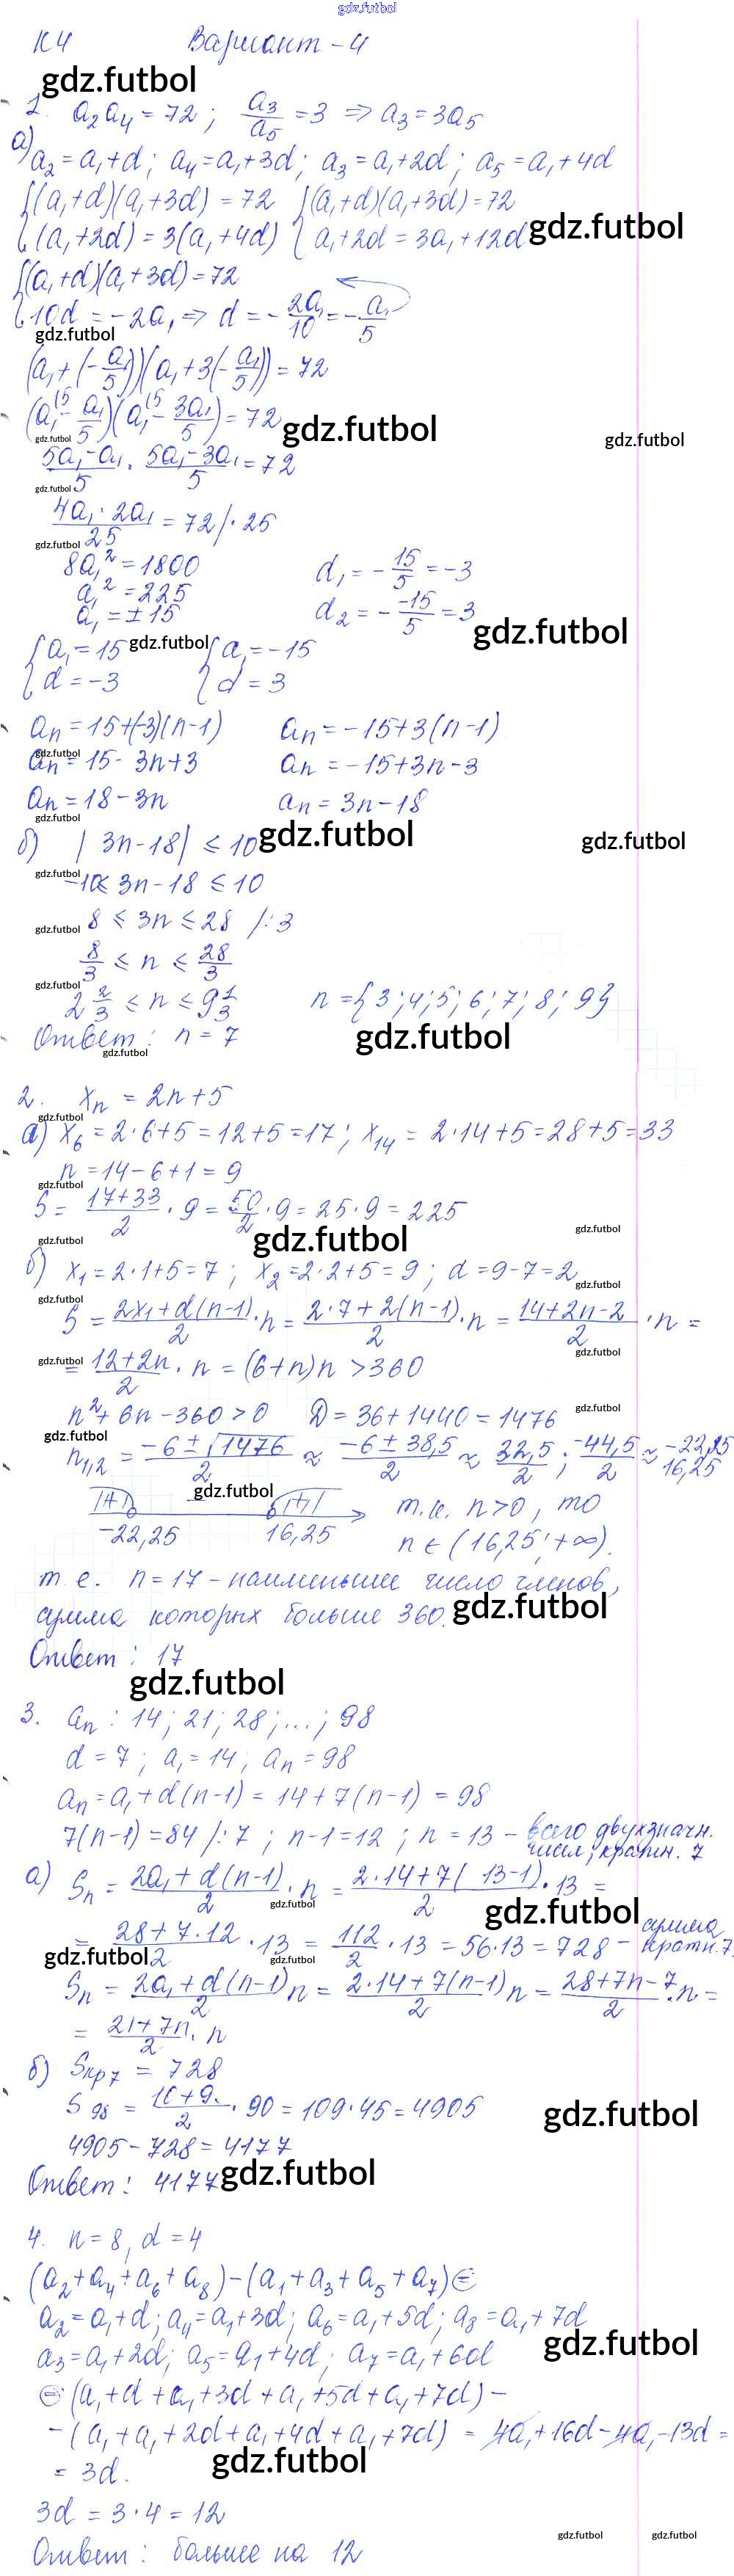 gdz.futbol
К4 Вариант-4
gdz.futbol
1. a₂a₄ = 72; a₃/a₅ = 3 ⇒ a₃ = 3a₅
а) a₂ = a₁+d; a₄ = a₁+3d; a₃ = a₁+2d; a₅ = a₁+4d
{(a₁+d)(a₁+3d) = 72 {(a₁+d)(a₁+3d) = 72
(a₁+2d) = 3(a₁+4d) a₁+2d = 3a₁+12d gdz.futbol
{(a₁+d)(a₁+3d) = 72
10d = -2a₁ ⇒ d = -2a₁/10 = -a₁/5
gdz.futbol
(a₁+(-a₁/5))(a₁+3(-a₁/5)) = 72
(a₁^(5 - a₁/5)(a₁^(5 - 3a₁/5) = 72 gdz.futbol
gdz.futbol gdz.futbol
5a₁-a₁/5 · 5a₁-3a₁/5 = 72
gdz.futbol
4a₁·2a₁/25 = 72 /·25
gdz.futbol
8a₁² = 1800 d₁ = -15/5 = -3
a₁² = 225
a₁ = ±15 d₂ = - -15/5 = 3 gdz.futbol
{a₁ = 15 gdz.futbol {a₁ = -15
d = -3 d = 3
aₙ = 15+(-3)(n-1) aₙ = -15+3(n-1)
gdz.futbol
aₙ = 15-3n+3 aₙ = -15+3n-3
aₙ = 18-3n aₙ = 3n-18
gdz.futbol
б) |3n-18| ≤ 10 gdz.futbol gdz.futbol
gdz.futbol
-10≤ 3n-18 ≤ 10
gdz.futbol 8 ≤ 3n ≤ 28 /:3
8/3 ≤ n ≤ 28/3
gdz.futbol
2 2/3 ≤ n ≤ 9 1/3 n = {3;4;5;6;7;8;9}
Ответ: n = 7 gdz.futbol
gdz.futbol
2. xₙ = 2n+5
gdz.futbol
а) x₆ = 2·6+5 = 12+5 = 17; x₁₄ = 2·14+5 = 28+5 = 33
n = 14-6+1 = 9
gdz.futbol
S = 17+33/2 · 9 = 50/2 · 9 = 25·9 = 225
gdz.futbol gdz.futbol gdz.futbol
б) x₁ = 2·1+5 = 7; x₂ = 2·2+5 = 9; d = 9-7 = 2
gdz.futbol gdz.futbol
S = 2x₁+d(n-1)/2 · n = 2·7+2(n-1)/2 · n = 14+2n-2/2 · n =
gdz.futbol gdz.futbol
= 12+2n/2 · n = (6+n)n > 360
n²+6n-360>0 D = 36+1440 = 1476 gdz.futbol
gdz.futbol
n₁,₂ = -6±√1476/2 ≈ -6±38,5/2 ≈ 32,5/2; -44,5/2 ≈ -22,25 16,25
gdz.futbol
/+/ - /+/ т.к. n>0, то
-22,25 16,25 n ∈ (16,25;+∞).
т.е. n = 17 - наименьшее число членов,
сумма которых больше 360. gdz.futbol
Ответ: 17
gdz.futbol
3. aₙ: 14; 21; 28; ...; 98
d = 7; a₁ = 14; aₙ = 98
aₙ = a₁+d(n-1) = 14+7(n-1) = 98
7(n-1) = 84 /:7; n-1 = 12; n = 13 - всего двухзначн. чисел, кратн. 7
а) Sₙ = 2a₁+d(n-1)/2 · n = 2·14+7(13-1)/2 · 13 =
gdz.futbol gdz.futbol
= 28+7·12/2 · 13 = 112/2 · 13 = 56·13 = 728 - сумма кратн. 7
gdz.futbol gdz.futbol
Sₙ = 2a₁+d(n-1)/2 n = 2·14+7(n-1)/2 n = 28+7n-7/2 · n =
= 21+7n/2 · n
б) Sкр7 = 728
S₉₈ = 10+9./2 · 90 = 109·45 = 4905 gdz.futbol
4905-728 = 4177
Ответ: 4177 gdz.futbol
4. n = 8, d = 4
(a₂+a₄+a₆+a₈)-(a₁+a₃+a₅+a₇) ⊜
a₂ = a₁+d; a₄ = a₁+3d; a₆ = a₁+5d; a₈ = a₁+7d
a₃ = a₁+2d; a₅ = a₁+4d; a₇ = a₁+6d gdz.futbol
⊜ (a₁+d+a₁+3d+a₁+5d+a₁+7d) -
-(a₁+a₁+2d+a₁+4d+a₁+7d) = 4a₁+16d-4a₁-13d =
= 3d. gdz.futbol
3d = 3·4 = 12
Ответ: больше на 12
gdz.futbol gdz.futbol